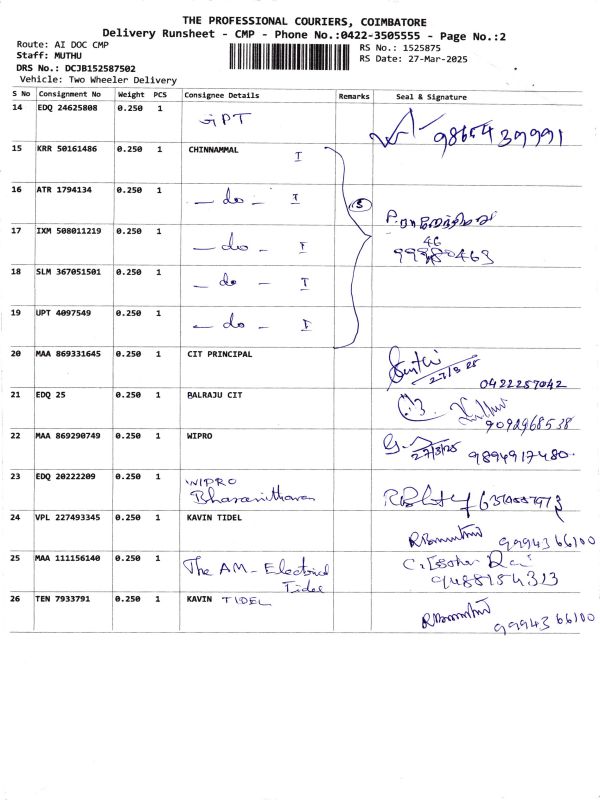 THE PROFESSIONAL COURIERS, COIMBATORE
Delivery Runsheet - CMP - Phone No.:0422-3505555 - Page No.:2
Route: AI DOC CMP
Staff: MUTHU
DRS No.: DCJB152587502
Vehicle: Two Wheeler Delivery
RS No.: 1525875
RS Date: 27-Mar-2025
S No Consignment No Weight PCS Consignee Details Remarks Seal & Signature
14 EDQ 24625808 0.250 1 GPT
15 KRR 50161486 0.250 1 CHINNAMMAL I
16 ATR 1794134 0.250 1 — do — I
5
17 IXM 508011219 0.250 1 — do — I
18 SLM 367051501 0.250 1 — do — I
19 UPT 4097549 0.250 1 — do — I
20 MAA 869331645 0.250 1 CIT PRINCIPAL 27/3/25 0422257042
21 EDQ 25 0.250 1 BALRAJU CIT 9092968538
22 MAA 869290749 0.250 1 WIPRO 27/3/25 9894917480
23 EDQ 20222209 0.250 1 WIPRO Bharanitharan
24 VPL 227493345 0.250 1 KAVIN TIDEL 9994366100
25 MAA 111156140 0.250 1 The AM - Electrical Tidel 9488154313
26 TEN 7933791 0.250 1 KAVIN TIDEL 9994366100